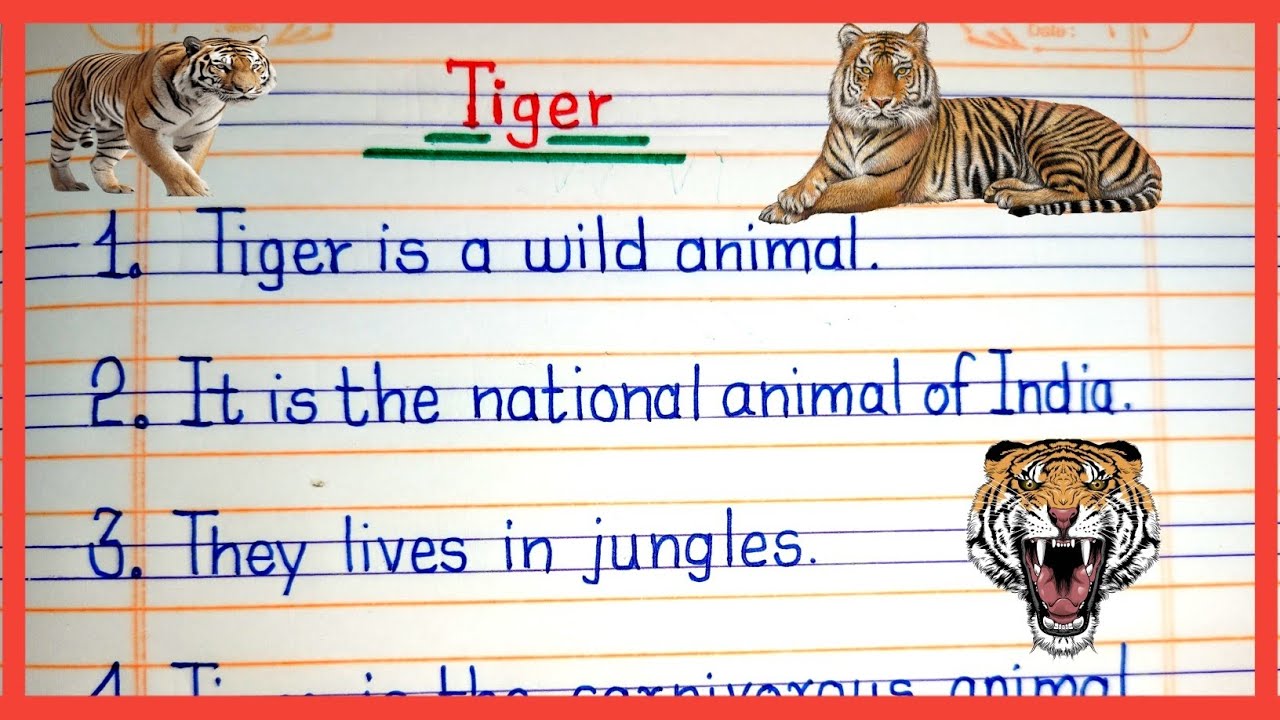 Date:
Tiger
1. Tiger is a wild animal.
2. It is the national animal of India.
3. They lives in jungles.
4. Tiger is the carnivorous animal